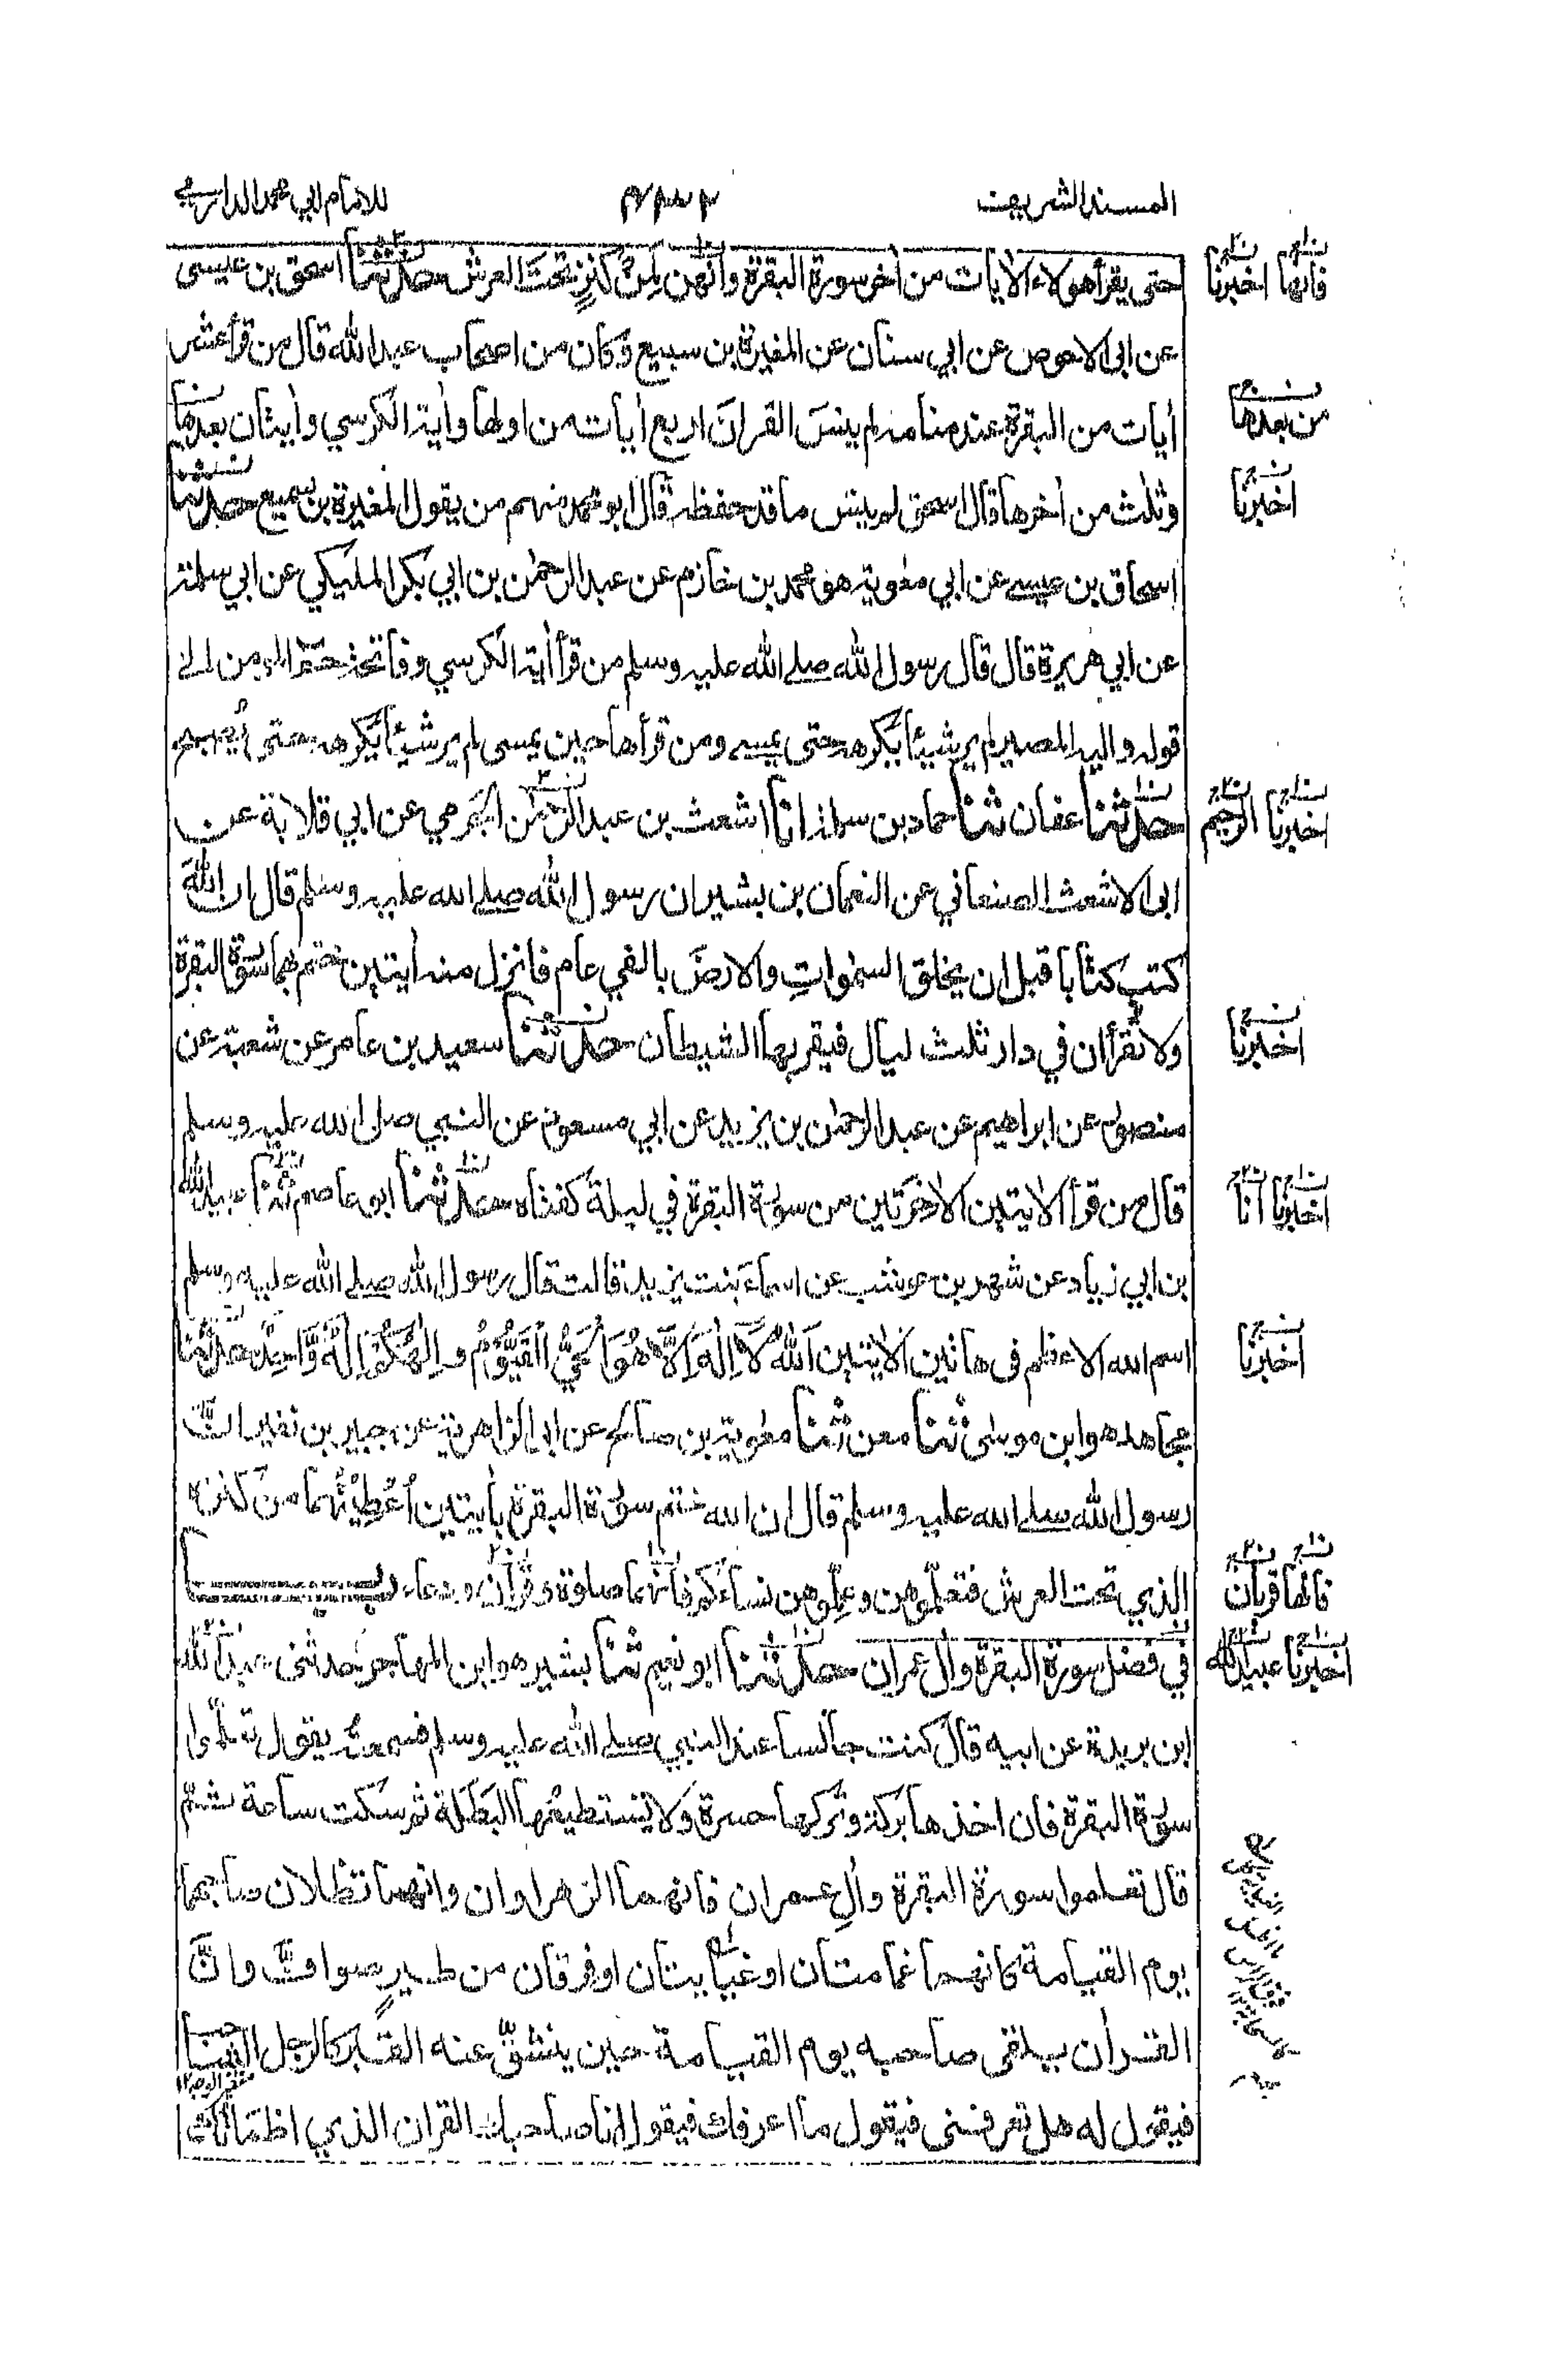 المسند الشريف
للامام ابي محمد الدارمي
حتى يقرأ هولاء الأيات من أخر سورة البقرة وانهن لمن كنز تحت العرش حدثنا اسحق بن عيسى
عن ابي الاحوص عن ابي سنان عن المغيرة بن سبيع وكان من اصحاب عبد الله قال من قرأ عشر
أيات من البقرة عند منامه لم ينس القران اربع أيات من اولها وأية الكرسي وأيتان بعدها
وثلث من أخرها قال اسحق لم ينس ما قد حفظه قال ابو محمد منهم من يقول المغيرة بن سميع حدثنا
اسحاق بن عيسى عن ابي معوية هو محمد بن خازم عن عبد الرحمن بن ابي بكر المليكي عن ابي سلمة
عن ابي هريرة قال قال رسول الله صلى الله عليه وسلم من قرأ أية الكرسي وفاتحة حم المؤمن الى
قوله واليه المصير لم ير شيئا يكرهه حتى يمسي ومن قرأها حين يمسى لم ير شيئا يكرهه حتى يصبح
حدثنا عفان ثنا حماد بن سلمة انا اشعث بن عبد الرحمن الجرمي عن ابي قلابة عن
ابى الاشعث الصنعاني عن النعمان بن بشير ان رسول الله صلى الله عليه وسلم قال ان الله
كتب كتابا قبل ان يخلق السموات والارض بالفي عام فانزل منه أيتين ختم بهما سورة البقرة
ولا تقرأان في دار ثلث ليال فيقربها الشيطان حدثنا سعيد بن عامر عن شعبة عن
منصور عن ابراهيم عن عبد الرحمن بن يزيد عن ابي مسعود عن النبي صلى الله عليه وسلم
قال من قرأ الايتين الأخرتين من سورة البقرة في ليلة كفتاه حدثنا ابو عاصم ثنا عبيد الله
بن ابي زياد عن شهر بن حوشب عن اسماء بنت يزيد قالت قال رسول الله صلى الله عليه وسلم
اسم الله الاعظم فى هاتين الأيتين اَللهُ لَا اِلٰهَ اِلَّا هُوَ الْحَيُّ الْقَيُّوْمُ و اِلٰهُكُمْ اِلٰهٌ وَّاحِدٌ حدثنا
مجاهد هو ابن موسى ثنا معن ثنا معوية بن صالح عن ابي الزاهرية عن جبير بن نفير ان
رسول الله صلى الله عليه وسلم قال ان الله ختم سورة البقرة بأيتين أُعْطِيْتُهُما من كنزه
الذي تحت العرش فتعلموهن وعلموهن نساءكم فانهما صلوة وقرأن ودعاء باب
في فضل سورة البقرة وأل عمران حدثنا ابو نعيم ثنا بشير هو ابن المهاجر حدثنى عبد الله
ابن بريدة عن ابيه قال كنت جالسا عند النبي صلى الله عليه وسلم فسمعته يقول تعلموا
سورة البقرة فان اخذها بركة وتركها حسرة ولا يستطيعها البطلة ثم سكت ساعة ثم
قال تعلموا سورة البقرة وأل عمران فانهما الزهراوان وانهما تظلان صاحبهما
يوم القيامة كانهما غمامتان او غيايتان او فرقان من طير صواف وان
القرأن يلقى صاحبه يوم القيامة حين ينشق عنه القبر كالرجل الشاحب
متغير اللون ١٢
فيقول له هل تعرفنى فيقول ما اعرفك فيقول انا صاحبك القران الذي اظمأتك
فانها اخبرنا
من بعدها
اخبرنا
اخبرنا الرحيم
اخبرنا
اخبرنا انا
اخبرنا
فانها قربان
اخبرنا عبيد الله